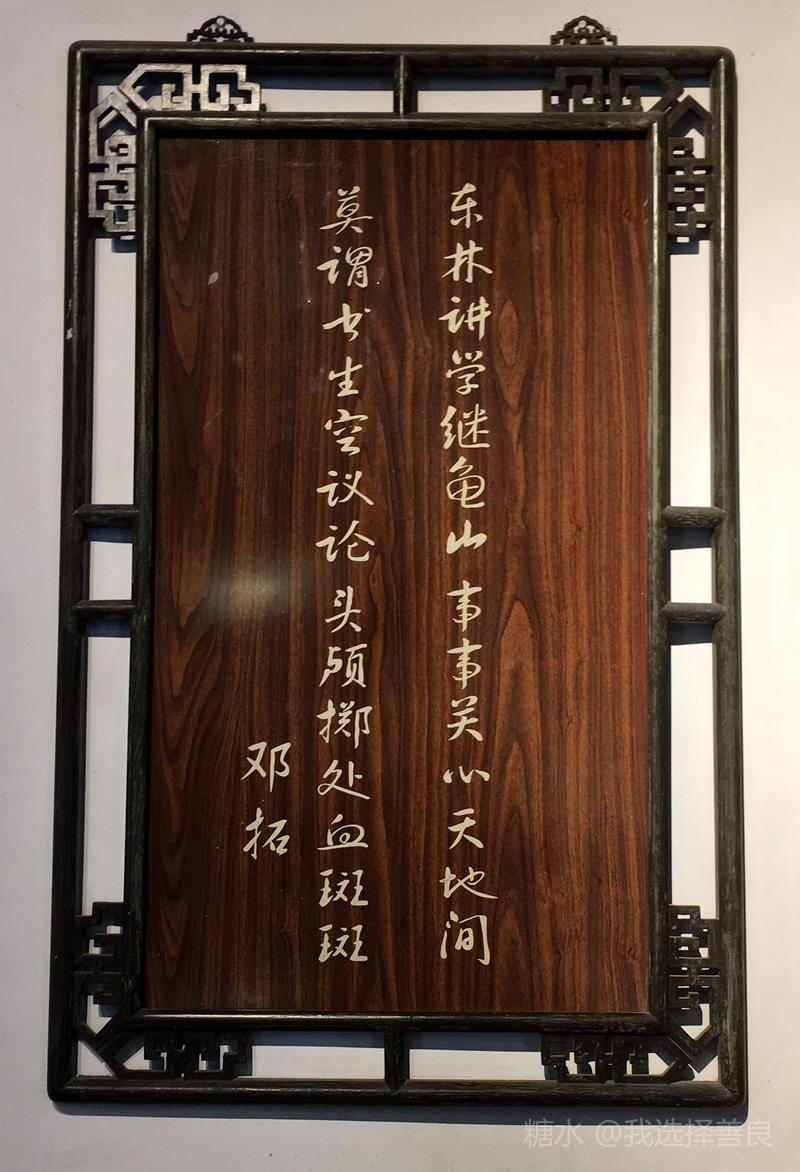 东林讲学继龟山 事事关心天地间
莫谓书生空议论 头颅掷处血斑斑
邓拓
糖水 @我选择善良